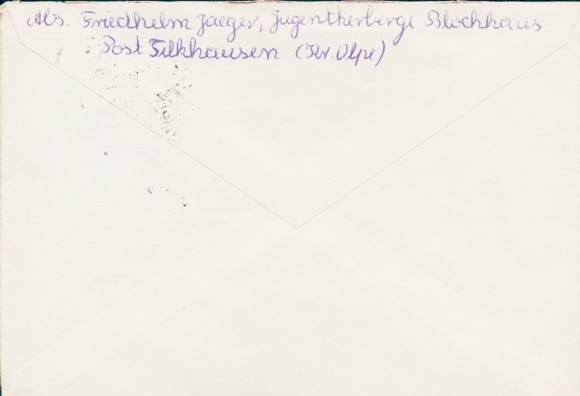 Abs. Friedhelm Jaeger, Jugendherberge Blockhaus
Post Filkhausen (Kr. Olpe)